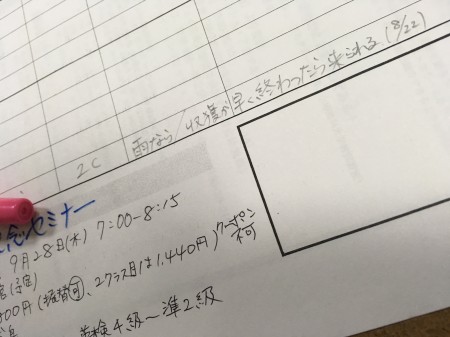 2C 雨なら/収穫が早く終わったら来られる (8/22)
念セミナー
9月28日(木) 7:00-8:15
(予定)
500円 (振替可、2クラス目は1,440円) クーポン不可
英検4級〜準2級